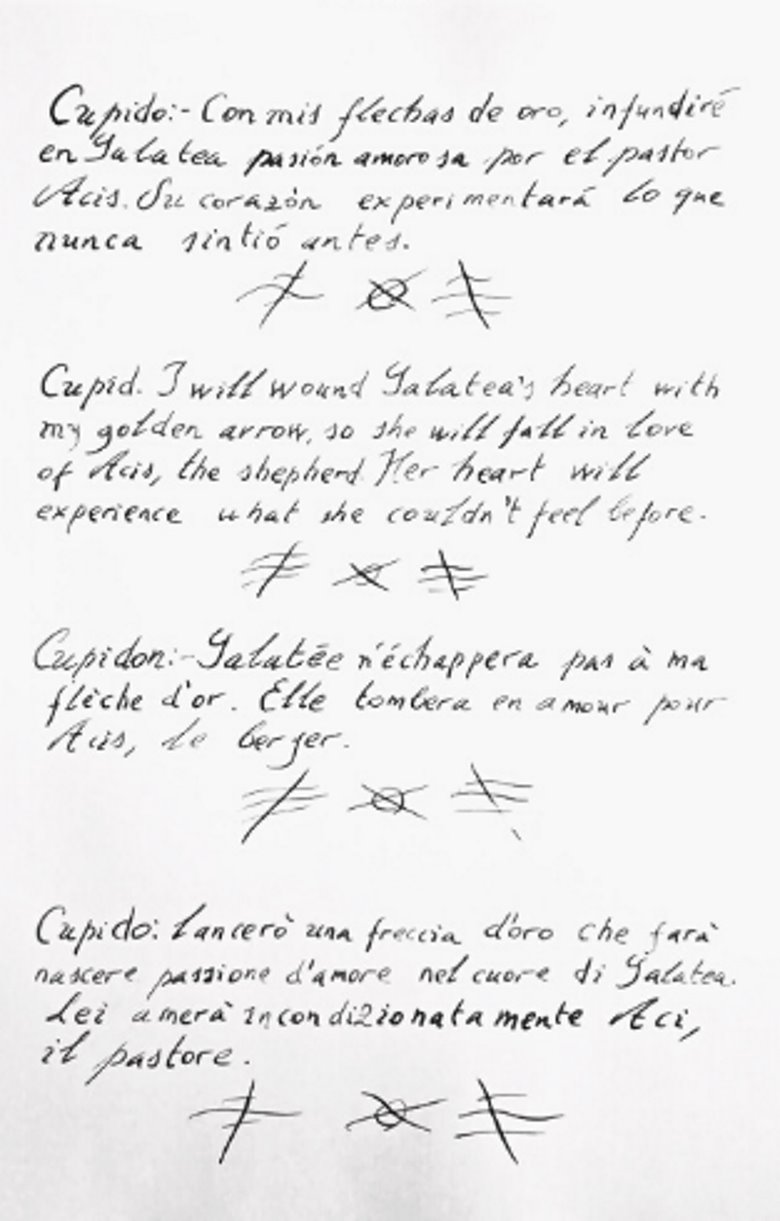 Cupido:- Con mis flechas de oro, infundiré
en Galatea pasión amorosa por el pastor
Acis. Su corazón experimentará lo que
nunca sintió antes.
Cupid. I will wound Galatea's heart with
my golden arrow, so she will fall in love
of Acis, the shepherd. Her heart will
experience what she couldn't feel before.
Cupidon:- Galatée n'échappera pas à ma
flèche d'or. Elle tombera en amour pour
Acis, le berger.
Cupido: Lancerò una freccia d'oro che farà
nascere passione d'amore nel cuore di Galatea.
Lei amerà incondizionatamente Aci,
il pastore.